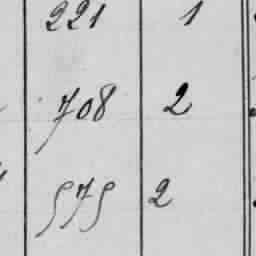 221 1
708 2
575 2